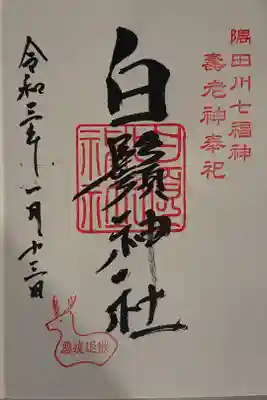 隅田川七福神
壽老神奉祀
白鬚神社
令和三年一月十三日